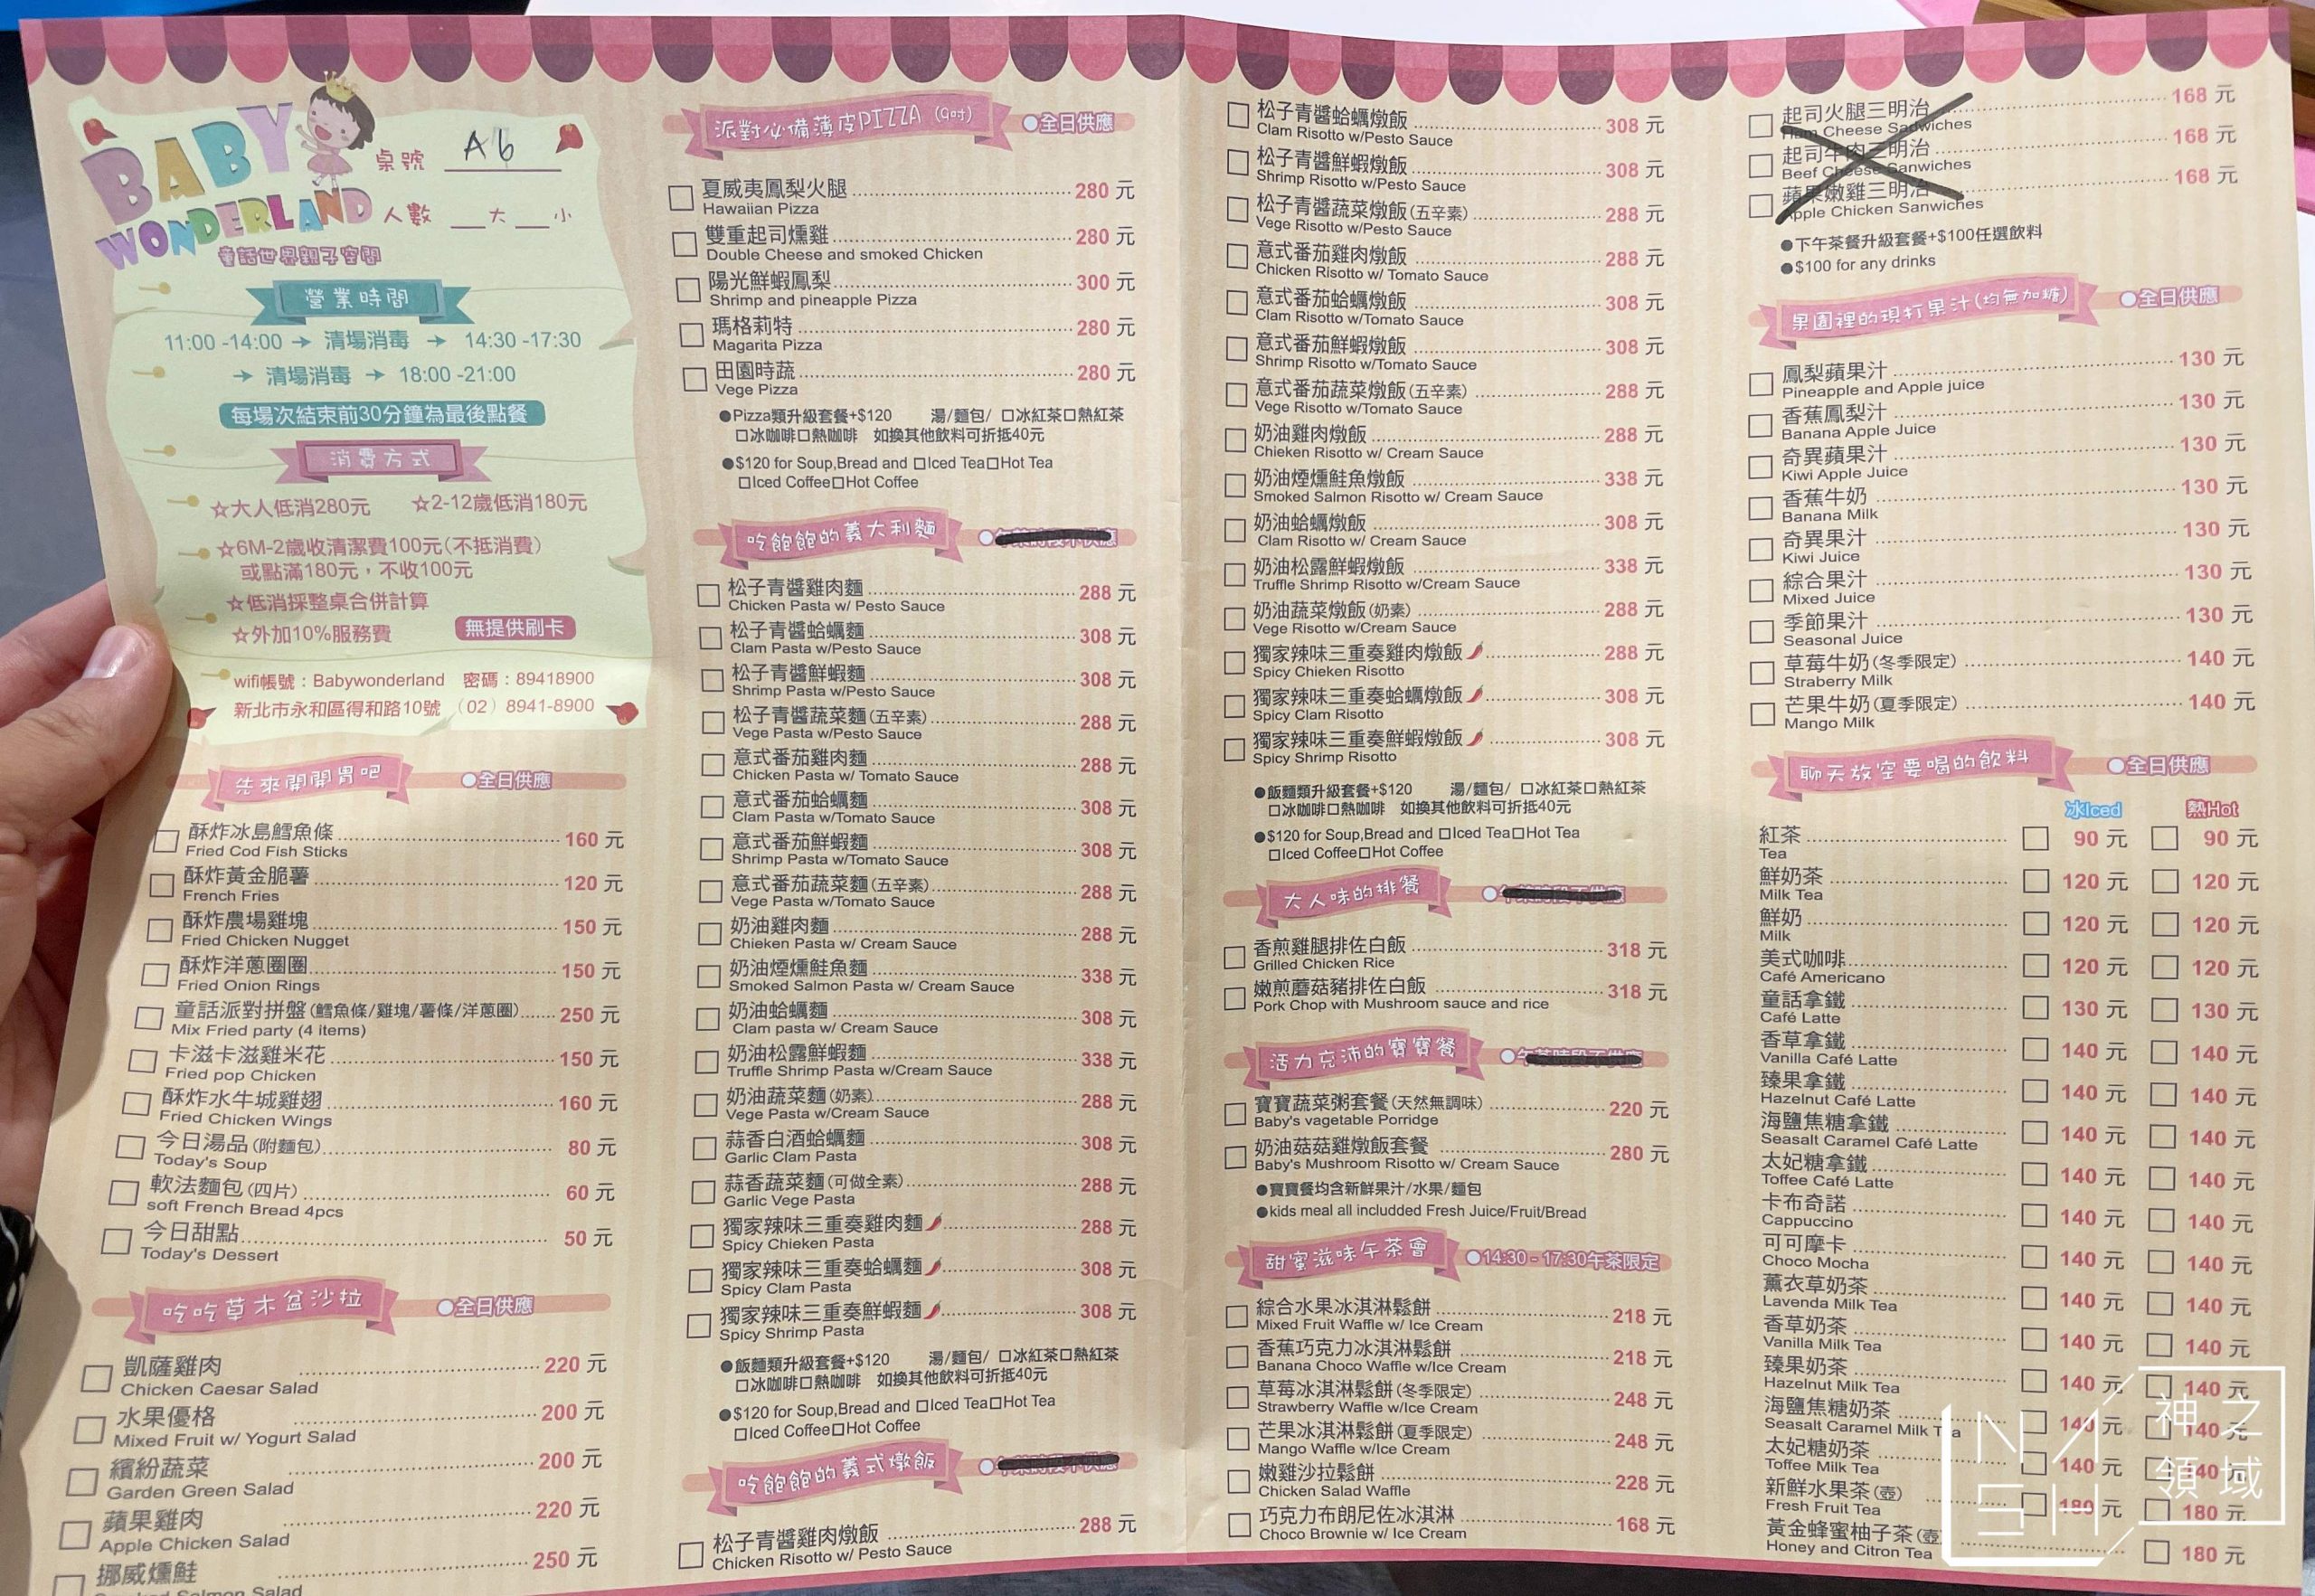 BABY
WONDERLAND
童話世界親子空間
桌號 A6
人數 __大__小
營業時間
11:00 -14:00 → 清場消毒 → 14:30 -17:30
→ 清場消毒 → 18:00 -21:00
每場次結束前30分鐘為最後點餐
消費方式
☆大人低消280元 ☆2-12歲低消180元
☆6M-2歲收清潔費100元(不抵消費)
或點滿180元,不收100元
☆低消採整桌合併計算
☆外加10%服務費 無提供刷卡
wifi帳號：Babywonderland 密碼：89418900
新北市永和區得和路10號 （02）8941-8900
先來開開胃吧 全日供應
酥炸冰島鱈魚條 160 元
Fried Cod Fish Sticks
酥炸黃金脆薯 120 元
French Fries
酥炸農場雞塊 150 元
Fried Chicken Nugget
酥炸洋蔥圈圈 150 元
Fried Onion Rings
童話派對拼盤(鱈魚條/雞塊/薯條/洋蔥圈) 250 元
Mix Fried party (4 items)
卡滋卡滋雞米花 150 元
Fried pop Chicken
酥炸水牛城雞翅 160 元
Fried Chicken Wings
今日湯品(附麵包) 80 元
Today's Soup
軟法麵包(四片) 60 元
soft French Bread 4pcs
今日甜點 50 元
Today's Dessert
吃吃草木盆沙拉 全日供應
凱薩雞肉 220 元
Chicken Caesar Salad
水果優格 200 元
Mixed Fruit w/ Yogurt Salad
繽紛蔬菜 200 元
Garden Green Salad
蘋果雞肉 220 元
Apple Chicken Salad
挪威燻鮭 250 元
Salmon Salad
派對必備薄皮PIZZA (9吋) 全日供應
夏威夷鳳梨火腿 280 元
Hawaiian Pizza
雙重起司燻雞 280 元
Double Cheese and smoked Chicken
陽光鮮蝦鳳梨 300 元
Shrimp and pineapple Pizza
瑪格莉特 280 元
Magarita Pizza
田園時蔬 280 元
Vege Pizza
●Pizza類升級套餐+$120 湯/麵包/ □冰紅茶□熱紅茶
□冰咖啡□熱咖啡 如換其他飲料可折抵40元
●$120 for Soup,Bread and □Iced Tea□Hot Tea
□Iced Coffee□Hot Coffee
吃飽飽的義大利麵
松子青醬雞肉麵 288 元
Chicken Pasta w/ Pesto Sauce
松子青醬蛤蠣麵 308 元
Clam Pasta w/Pesto Sauce
松子青醬鮮蝦麵 308 元
Shrimp Pasta w/Pesto Sauce
松子青醬蔬菜麵(五辛素) 288 元
Vege Pasta w/Pesto Sauce
意式番茄雞肉麵 288 元
Chicken Pasta w/ Tomato Sauce
意式番茄蛤蠣麵 308 元
Clam Pasta w/Tomato Sauce
意式番茄鮮蝦麵 308 元
Shrimp Pasta w/Tomato Sauce
意式番茄蔬菜麵(五辛素) 288 元
Vege Pasta w/Tomato Sauce
奶油雞肉麵 288 元
Chieken Pasta w/ Cream Sauce
奶油煙燻鮭魚麵 338 元
Smoked Salmon Pasta w/ Cream Sauce
奶油蛤蠣麵 308 元
Clam pasta w/ Cream Sauce
奶油松露鮮蝦麵 338 元
Truffle Shrimp Pasta w/Cream Sauce
奶油蔬菜麵(奶素) 288 元
Vege Pasta w/Cream Sauce
蒜香白酒蛤蠣麵 308 元
Garlic Clam Pasta
蒜香蔬菜麵(可做全素) 288 元
Garlic Vege Pasta
獨家辣味三重奏雞肉麵 288 元
Spicy Chieken Pasta
獨家辣味三重奏蛤蠣麵 308 元
Spicy Clam Pasta
獨家辣味三重奏鮮蝦麵 308 元
Spicy Shrimp Pasta
●飯麵類升級套餐+$120 湯/麵包/ □冰紅茶□熱紅茶
□冰咖啡□熱咖啡 如換其他飲料可折抵40元
●$120 for Soup,Bread and □Iced Tea□Hot Tea
□Iced Coffee□Hot Coffee
吃飽飽的義式燉飯
松子青醬雞肉燉飯 288 元
Chicken Risotto w/ Pesto Sauce
松子青醬蛤蠣燉飯 308 元
Clam Risotto w/Pesto Sauce
松子青醬鮮蝦燉飯 308 元
Shrimp Risotto w/Pesto Sauce
松子青醬蔬菜燉飯(五辛素) 288 元
Vege Risotto w/Pesto Sauce
意式番茄雞肉燉飯 288 元
Chicken Risotto w/ Tomato Sauce
意式番茄蛤蠣燉飯 308 元
Clam Risotto w/Tomato Sauce
意式番茄鮮蝦燉飯 308 元
Shrimp Risotto w/Tomato Sauce
意式番茄蔬菜燉飯(五辛素) 288 元
Vege Risotto w/Tomato Sauce
奶油雞肉燉飯 288 元
Chieken Risotto w/ Cream Sauce
奶油煙燻鮭魚燉飯 338 元
Smoked Salmon Risotto w/ Cream Sauce
奶油蛤蠣燉飯 308 元
Clam Risotto w/ Cream Sauce
奶油松露鮮蝦燉飯 338 元
Truffle Shrimp Risotto w/Cream Sauce
奶油蔬菜燉飯(奶素) 288 元
Vege Risotto w/Cream Sauce
獨家辣味三重奏雞肉燉飯 288 元
Spicy Chieken Risotto
獨家辣味三重奏蛤蠣燉飯 308 元
Spicy Clam Risotto
獨家辣味三重奏鮮蝦燉飯 308 元
Spicy Shrimp Risotto
●飯麵類升級套餐+$120 湯/麵包/ □冰紅茶□熱紅茶
□冰咖啡□熱咖啡 如換其他飲料可折抵40元
●$120 for Soup,Bread and □Iced Tea□Hot Tea
□Iced Coffee□Hot Coffee
大人味的排餐
香煎雞腿排佐白飯 318 元
Grilled Chicken Rice
嫩煎蘑菇豬排佐白飯 318 元
Pork Chop with Mushroom sauce and rice
活力充沛的寶寶餐
寶寶蔬菜粥套餐(天然無調味) 220 元
Baby's vagetable Porridge
奶油菇菇雞燉飯套餐 280 元
Baby's Mushroom Risotto w/ Cream Sauce
●寶寶餐均含新鮮果汁/水果/麵包
●kids meal all includded Fresh Juice/Fruit/Bread
甜蜜滋味午茶會 14:30 - 17:30午茶限定
綜合水果冰淇淋鬆餅 218 元
Mixed Fruit Waffle w/ Ice Cream
香蕉巧克力冰淇淋鬆餅 218 元
Banana Choco Waffle w/Ice Cream
草莓冰淇淋鬆餅(冬季限定) 248 元
Strawberry Waffle w/Ice Cream
芒果冰淇淋鬆餅(夏季限定) 248 元
Mango Waffle w/Ice Cream
嫩雞沙拉鬆餅 228 元
Chicken Salad Waffle
巧克力布朗尼佐冰淇淋 168 元
Choco Brownie w/ Ice Cream
起司火腿三明治 168 元
Ham Cheese Sadwiches
起司牛肉三明治 168 元
Beef Cheese Sanwiches
蘋果嫩雞三明治 168 元
Apple Chicken Sanwiches
●下午茶餐升級套餐+$100任選飲料
●$100 for any drinks
果園裡的現打果汁(均無加糖) 全日供應
鳳梨蘋果汁 130 元
Pineapple and Apple juice
香蕉鳳梨汁 130 元
Banana Apple Juice
奇異蘋果汁 130 元
Kiwi Apple Juice
香蕉牛奶 130 元
Banana Milk
奇異果汁 130 元
Kiwi Juice
綜合果汁 130 元
Mixed Juice
季節果汁 130 元
Seasonal Juice
草莓牛奶(冬季限定) 140 元
Straberry Milk
芒果牛奶(夏季限定) 140 元
Mango Milk
聊天放空要喝的飲料 全日供應
冰Iced 熱Hot
紅茶 90 元 90 元
Tea
鮮奶茶 120 元 120 元
Milk Tea
鮮奶 120 元 120 元
Milk
美式咖啡 120 元 120 元
Café Americano
童話拿鐵 130 元 130 元
Café Latte
香草拿鐵 140 元 140 元
Vanilla Café Latte
臻果拿鐵 140 元 140 元
Hazelnut Café Latte
海鹽焦糖拿鐵 140 元 140 元
Seasalt Caramel Café Latte
太妃糖拿鐵 140 元 140 元
Toffee Café Latte
卡布奇諾 140 元 140 元
Cappuccino
可可摩卡 140 元 140 元
Choco Mocha
薰衣草奶茶 140 元 140 元
Lavenda Milk Tea
香草奶茶 140 元 140 元
Vanilla Milk Tea
臻果奶茶 140 元 140 元
Hazelnut Milk Tea
海鹽焦糖奶茶 140 元 140 元
Seasalt Caramel Milk Tea
太妃糖奶茶 140 元 140 元
Toffee Milk Tea
新鮮水果茶(壺) 180 元 180 元
Fresh Fruit Tea
黃金蜂蜜柚子茶(壺) 180 元
Honey and Citron Tea
NASH
神之
領域